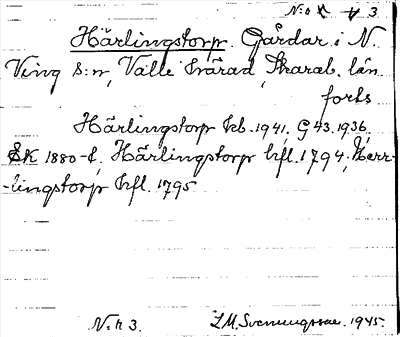 N:o 3
Härlingstorp. Gårdar i N.
Ving s:n, Valle härad, Skarab. län.
forts
Härlingstorp kb. 1941, G 43. 1936.
SK 1880-t. Härlingstorp hfl. 1794, Herr-
-lingstorp hfl. 1795
N:r 3. I.M. Svenungsson. 1945.